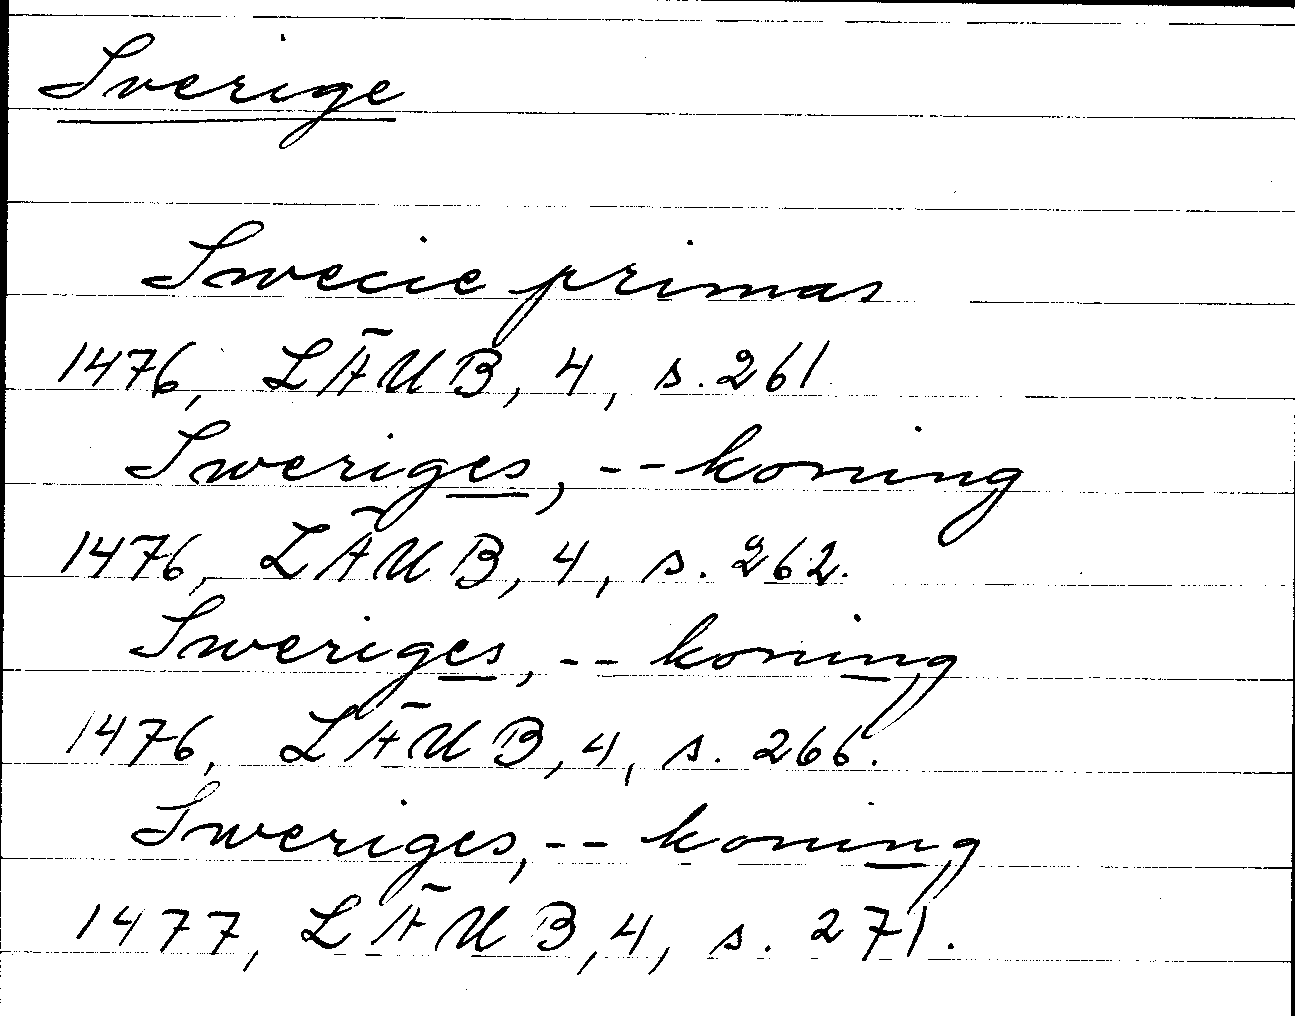 Sverige
Swecie primas
1476, LÄUB, 4, s. 261
Sweriges, -- koning
1476, LÄUB, 4, s. 262.
Sweriges, -- koning
1476, LÄUB, 4, s. 266.
Sweriges, -- koning
1477, LÄUB, 4, s. 271.